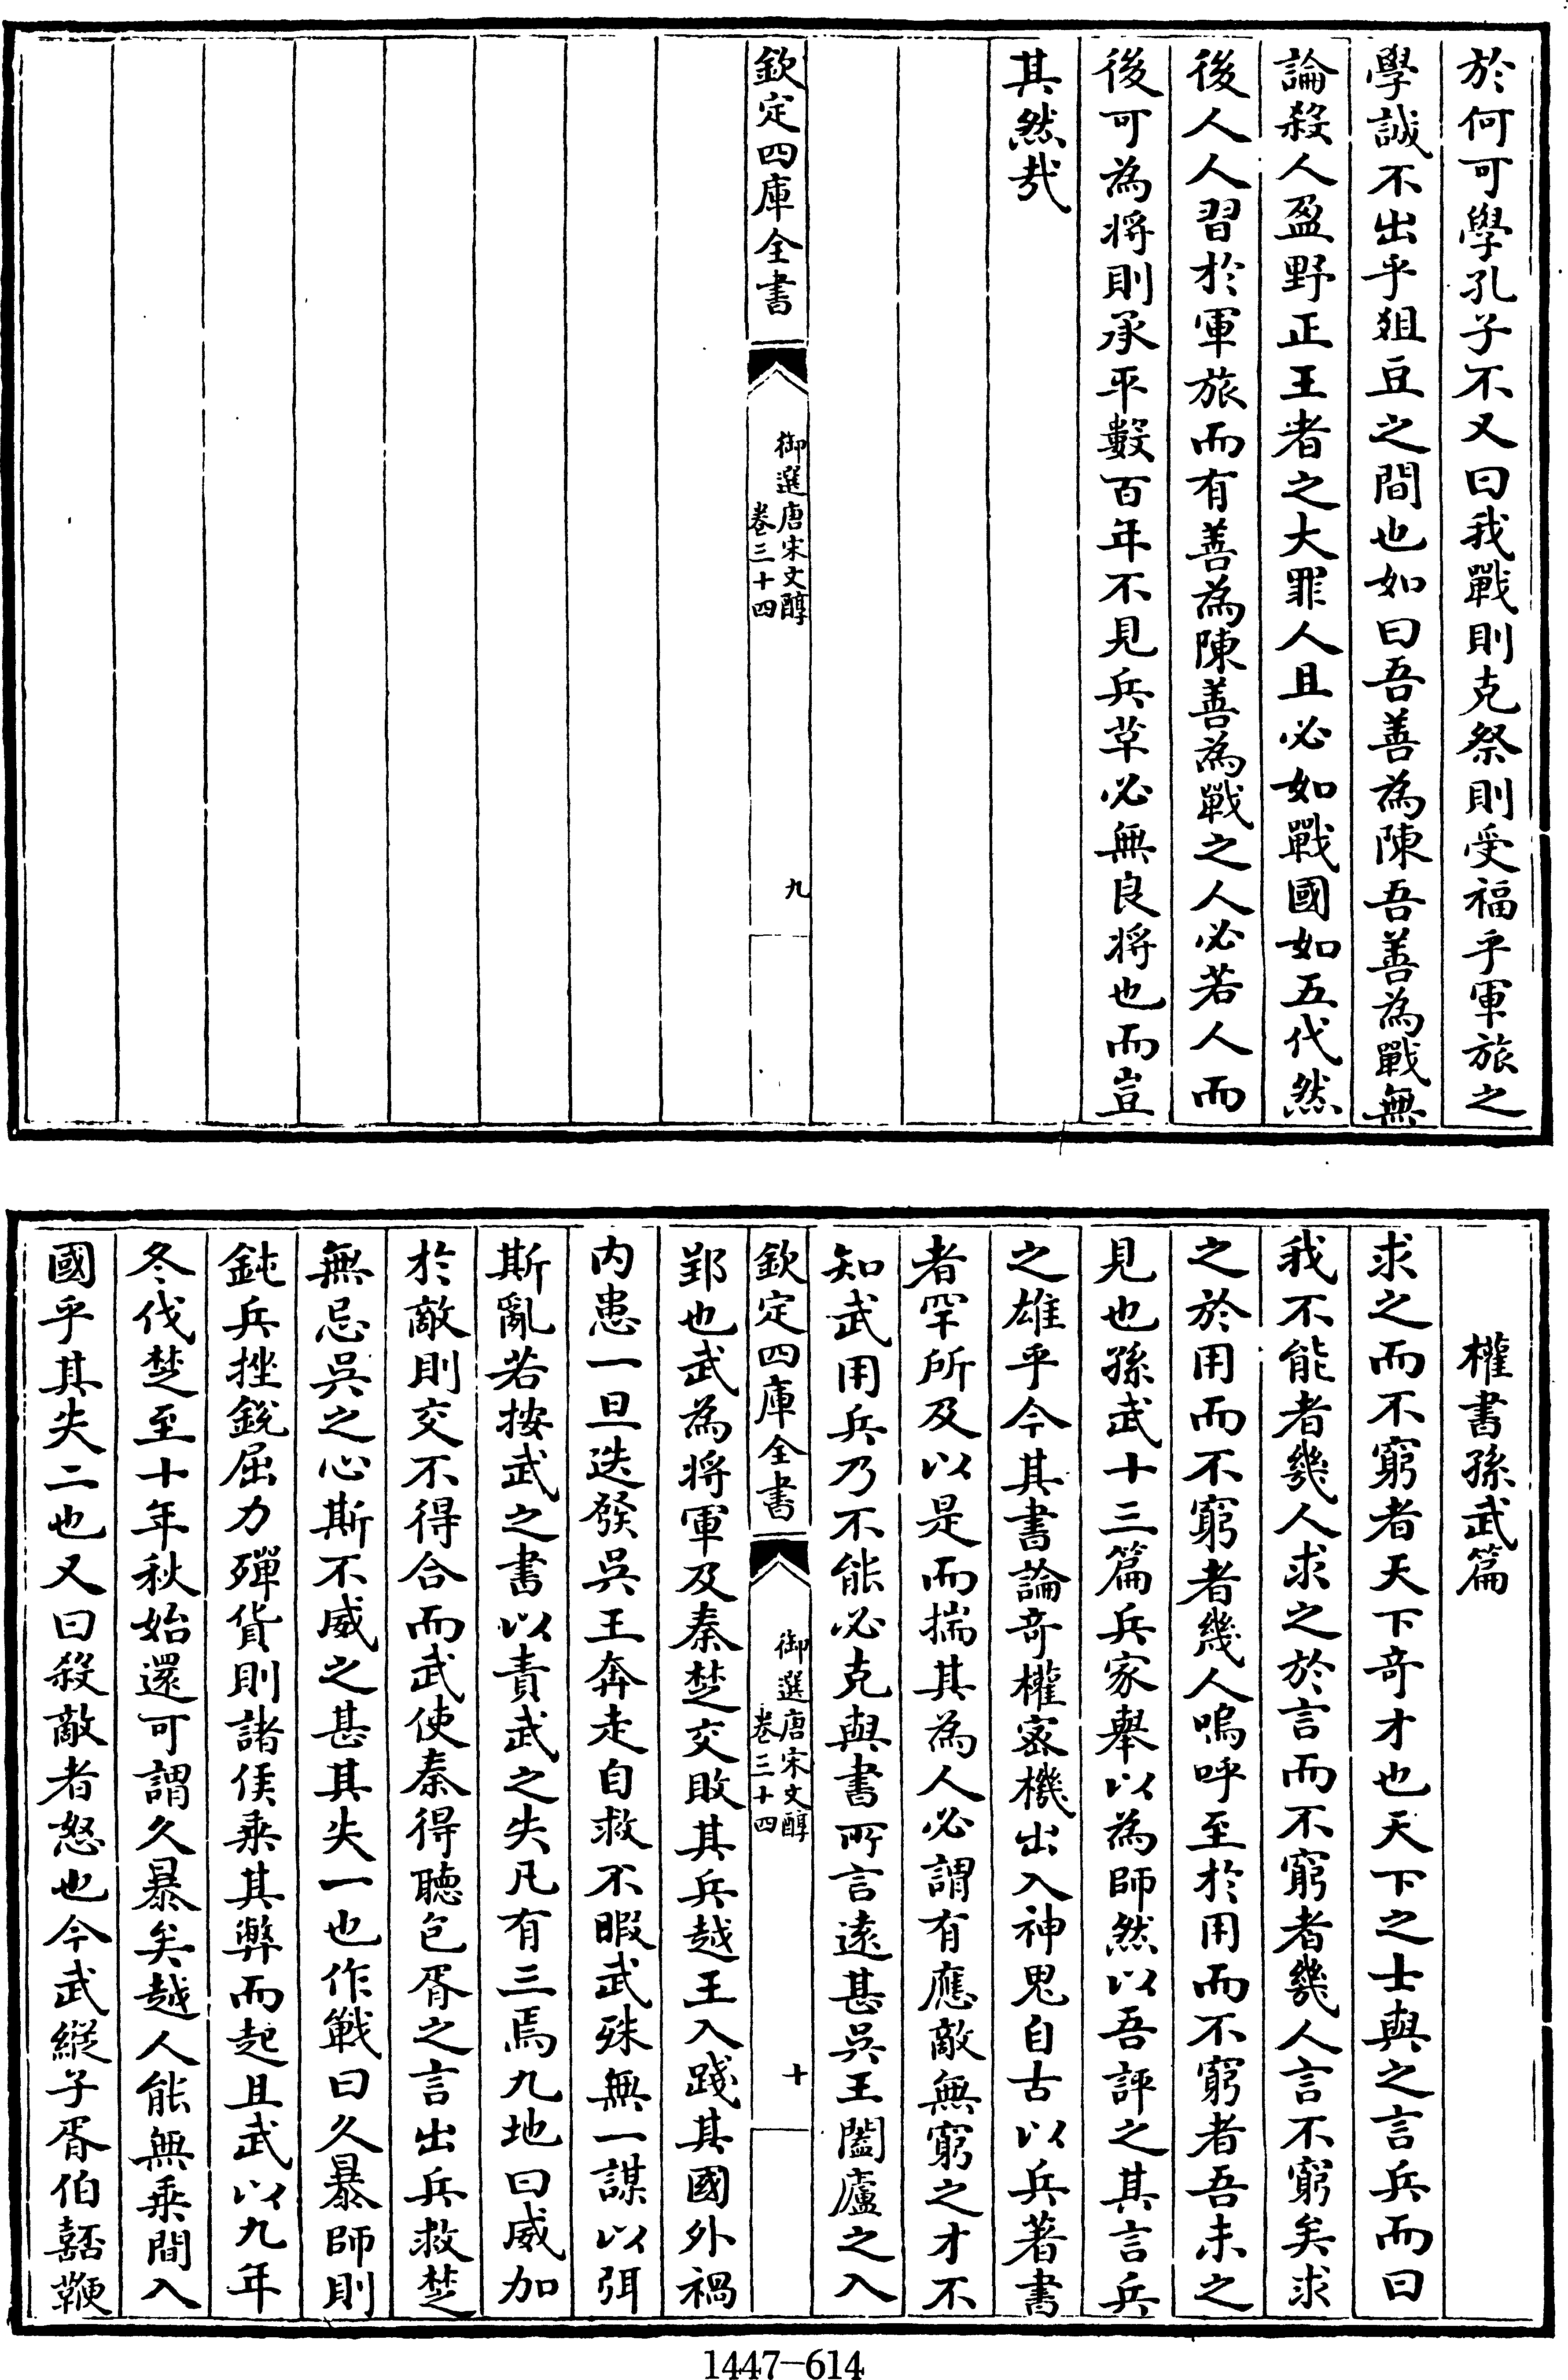 於何可學孔子不又曰我戰則克祭則受福乎軍旅之
學誠不出乎俎豆之間也如曰吾善為陳吾善為戰無
論殺人盈野正王者之大罪人且必如戰國如五代然
後人人習於軍旅而有善為陳善為戰之人必若人而
後可為將則承平數百年不見兵革必無良將也而豈
其然哉
欽定四庫全書
御選唐宋文醇
卷三十四
九
權書孫武篇
求之而不窮者天下竒才也天下之士與之言兵而曰
我不能者幾人求之於言而不窮者幾人言不窮矣求
之於用而不窮者幾人嗚呼至於用而不窮者吾未之
見也孫武十三篇兵家舉以為師然以吾評之其言兵
之雄乎今其書論竒權宻機出入神鬼自古以兵著書
者罕所及以是而揣其為人必謂有應敵無窮之才不
知武用兵乃不能必克與書所言逺甚吳王闔廬之入
欽定四庫全書
御選唐宋文醇
卷三十四
十
郢也武為將軍及秦楚交敗其兵越王入踐其國外禍
内患一旦迭發吳王奔走自救不暇武殊無一謀以弭
斯亂若按武之書以責武之失凡有三焉九地曰威加
於敵則交不得合而武使秦得聽包胥之言出兵救楚
無忌吳之心斯不威之甚其失一也作戰曰久暴師則
鈍兵挫銳屈力殫貨則諸侯乘其弊而起且武以九年
冬伐楚至十年秋始還可謂久暴矣越人能無乘間入
國乎其失二也又曰殺敵者怒也今武縱子胥伯嚭鞭
1447—614